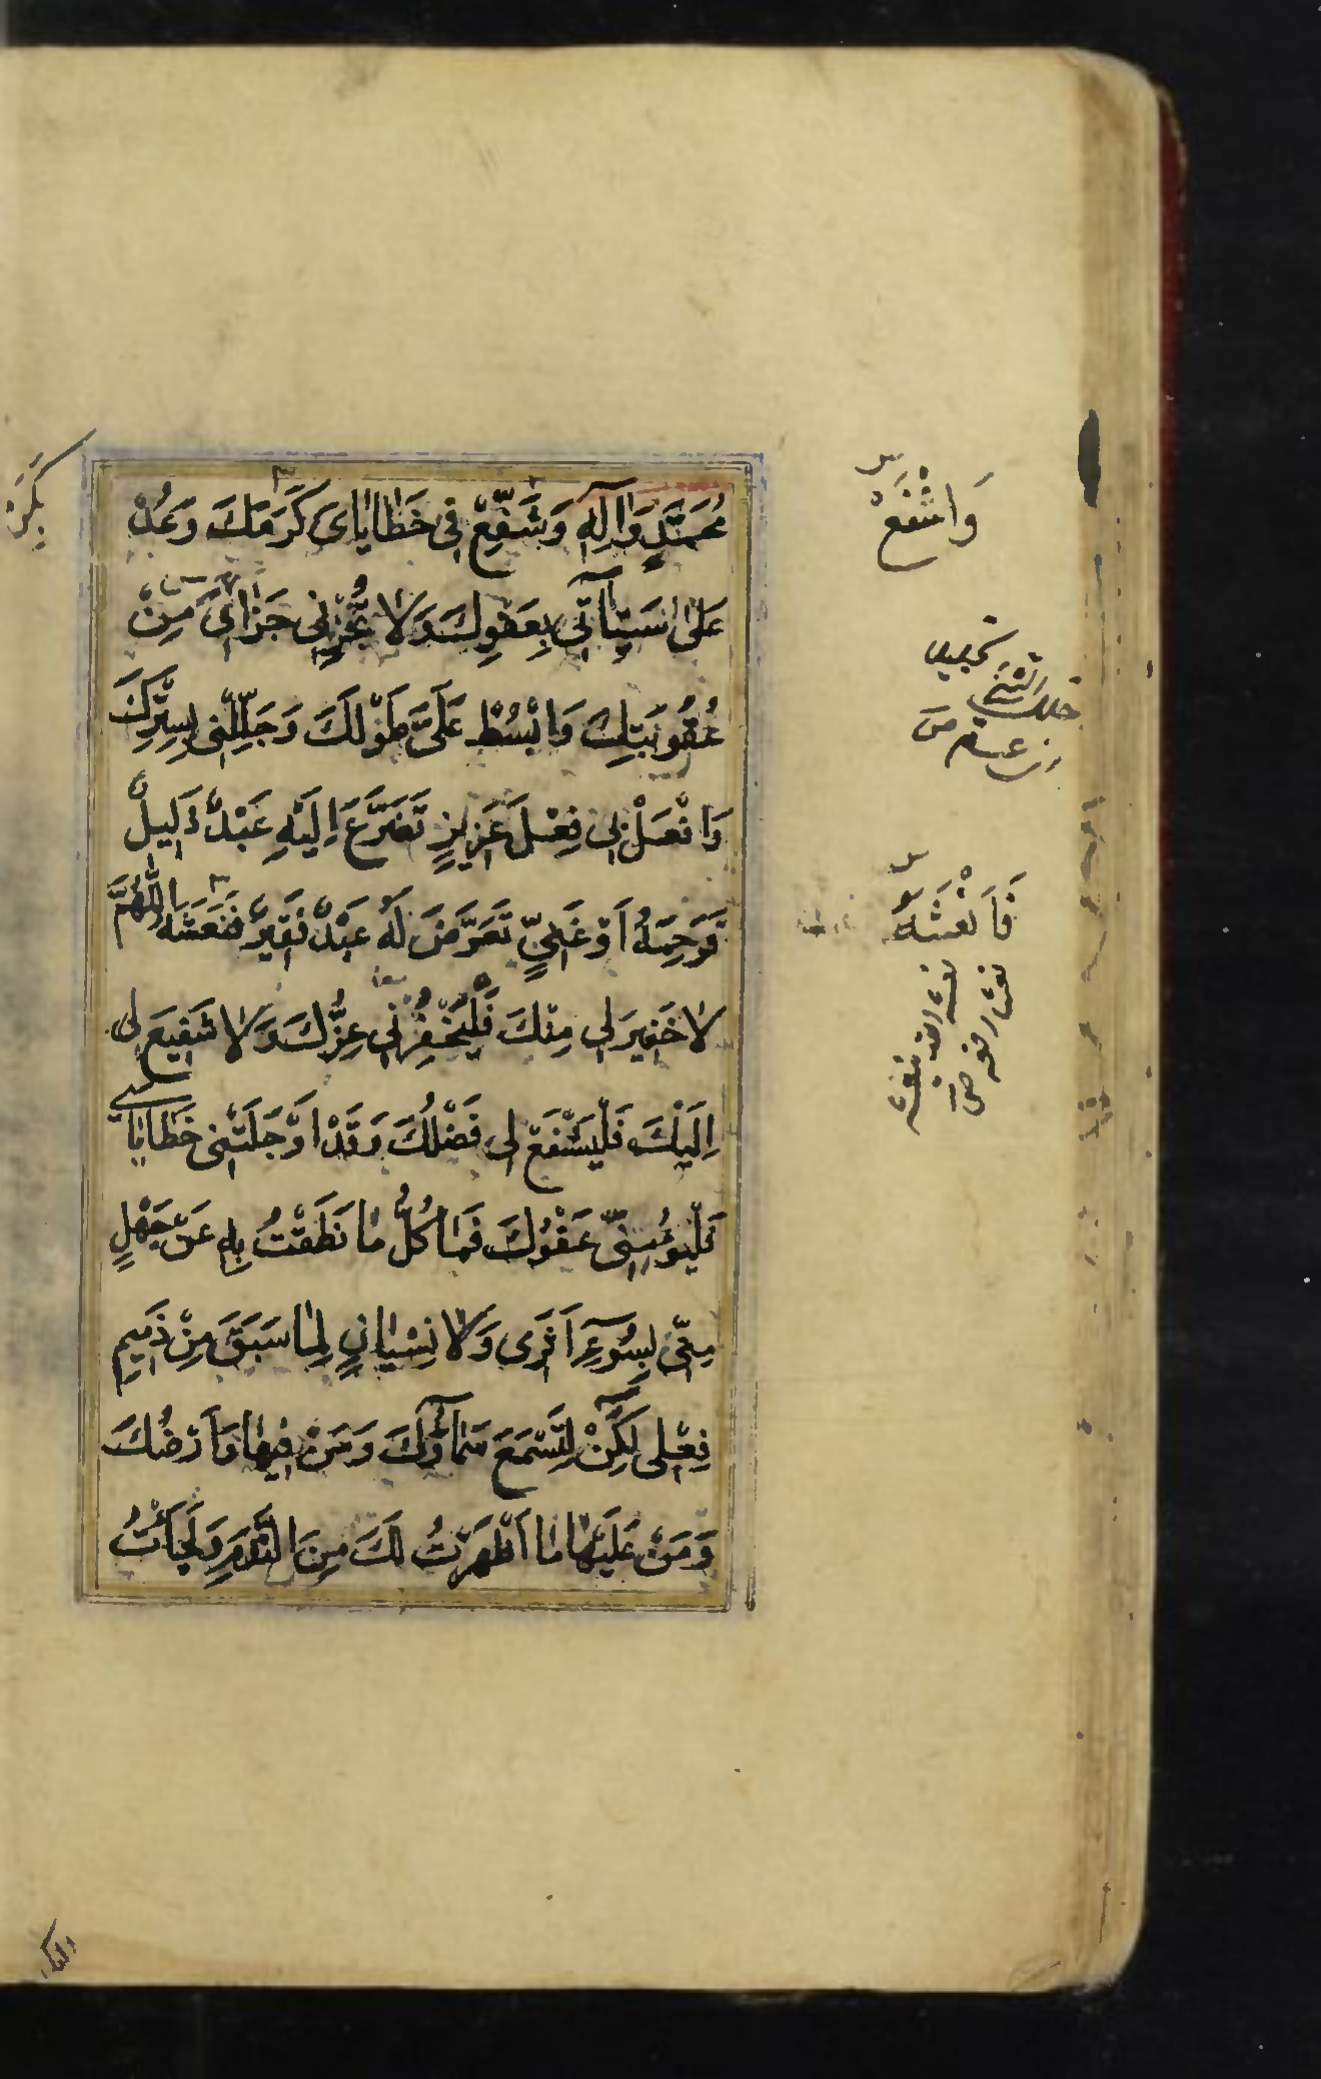 مُحَمَّدٍ وَاٰلِهِ وَشَفِّعْ فِى خَطٰايٰاىَ كَرَمَكَ وَعُدْ
عَلٰى سَيِّئٰاتِى بِعَفْوِكَ وَلٰا تَجْزِنِى جَزٰائِى مِنْ
عُقُوبَتِكَ وَابْسُطْ عَلَىَّ طَوْلَكَ وَجَلِّلْنِى بِسِتْرِكَ
وَافْعَلْ بِى فِعْلَ عَزِيزٍ تَضَرَّعَ اِلَيْهِ عَبْدٌ ذَلِيلٌ
فَرَحِمَهُ اَوْ غَنِىٍّ تَعَرَّضَ لَهُ عَبْدٌ فَقِيرٌ فَنَعَشَهُ اللّٰهُمَّ
لٰا خَفِيرَ لِى مِنْكَ فَلْيَخْفُرْنِى عِزُّكَ وَلٰا شَفِيعَ لِى
اِلَيْكَ فَلْيَشْفَعْ لِى فَضْلُكَ وَقَدْ اَوْجَلَتْنِى خَطٰايٰاىَ
فَلْيُؤْمِنِّى عَفْوُكَ فَمٰا كُلُّ مٰا نَطَقْتُ بِهِ عَنْ جَهْلٍ
مِنِّى بِسُوۤءِ اَثَرِى وَلٰا نِسْيٰانٍ لِمٰا سَبَقَ مِنْ ذَمِيمِ
فِعْلِى لٰكِنْ لِتَسْمَعَ سَمٰاۤؤُكَ وَمَنْ فِيهٰا وَاَرْضُكَ
وَمَنْ عَلَيْهٰا مٰا اَظْهَرْتُ لَكَ مِنَ النَّدَمِ وَلَجَأْتُ
وَاشْفَعْ
فَاَنْعَشَهُ